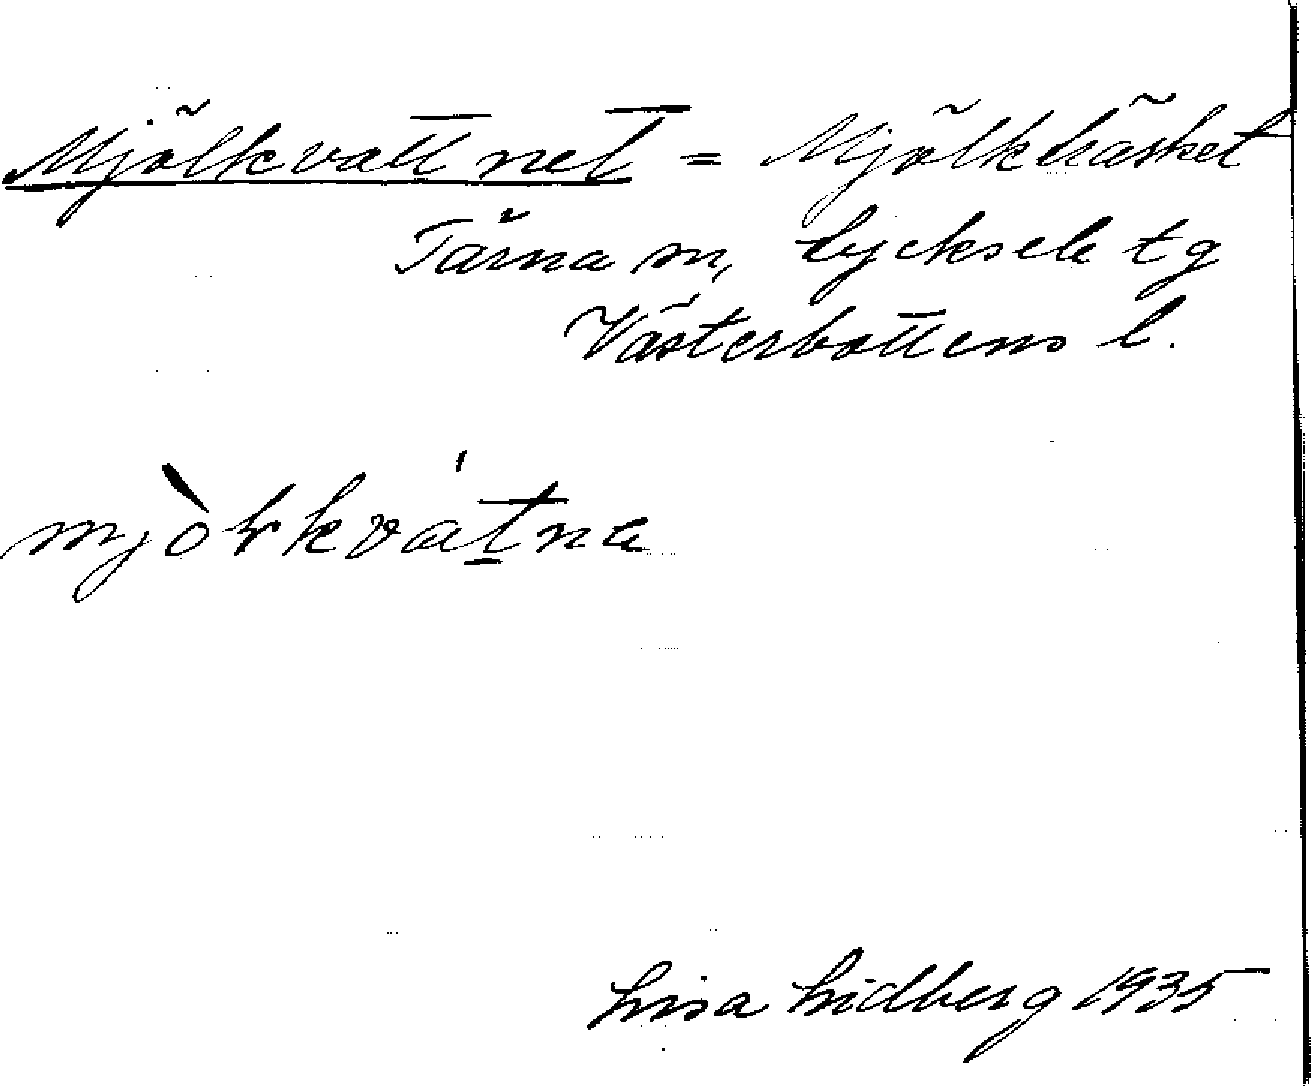 Mjölkvattnet = Mjölkträsket
Tärna sn, Lycksele tg
Västerbottens l.
Lisa Lidberg 1935